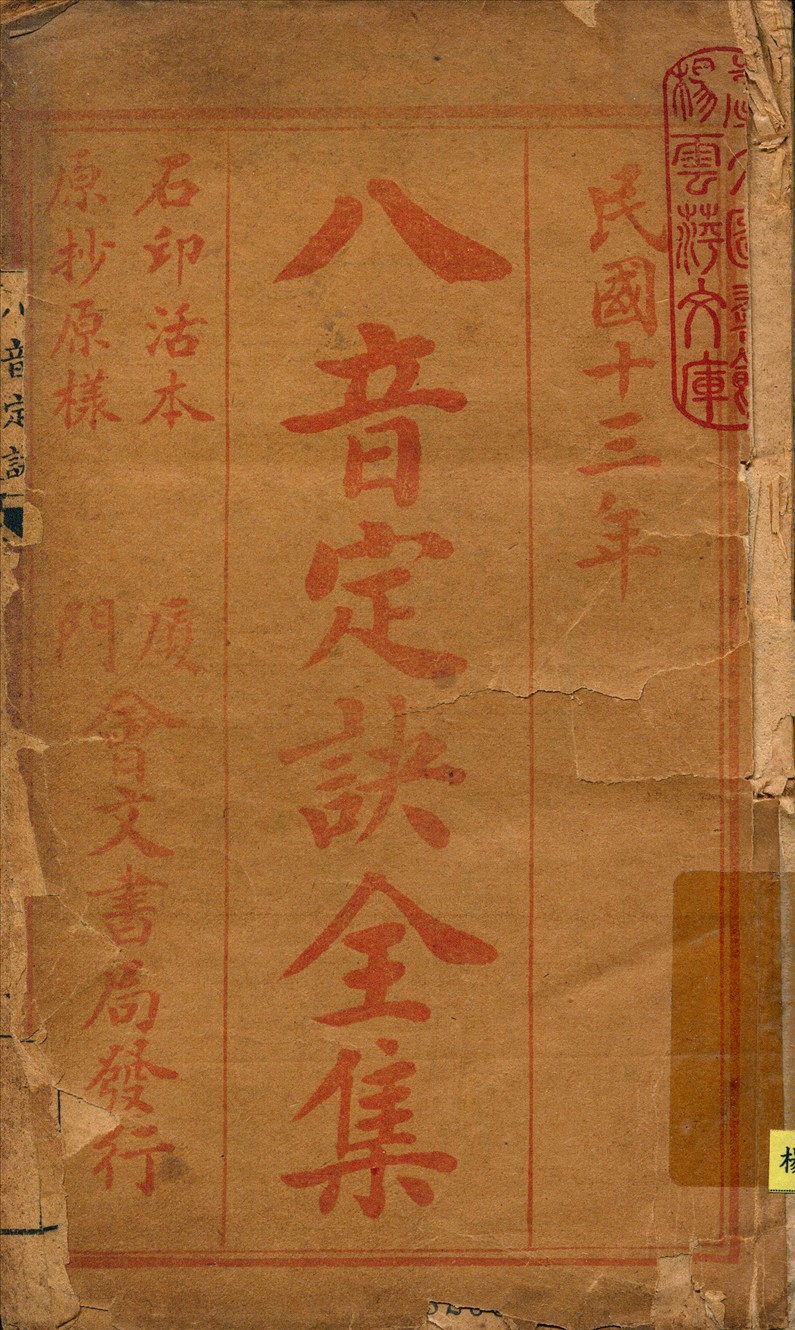 民國十三年
八音定訣全集
石印活本
原抄原樣
厦門會文書局發行
楊雲萍文庫
八音定訣